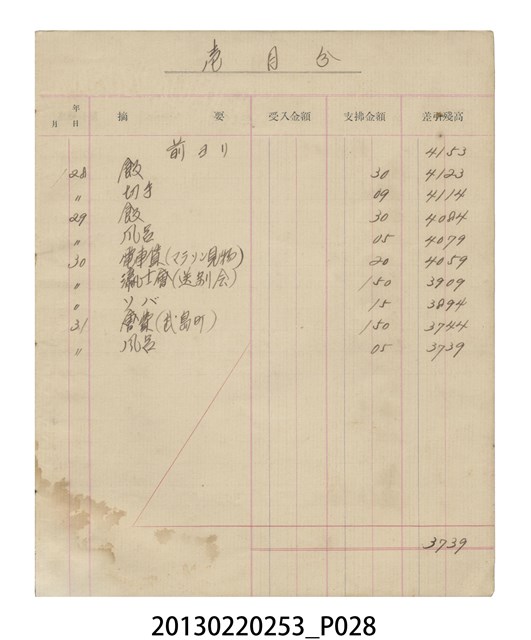 壱月分
年 月 日 摘 要 受入金額 支拂金額 差引残高
前ヨリ 4153
28 飯 30 4123
〃 切手 09 4114
29 飯 30 4084
〃 風呂 05 4079
30 電車賃(マラソン見物) 20 4059
〃 (送別会) 150 3909
〃 ソバ 15 3894
31 (町) 150 3744
〃 風呂 05 3739
3739
20130220253_P028